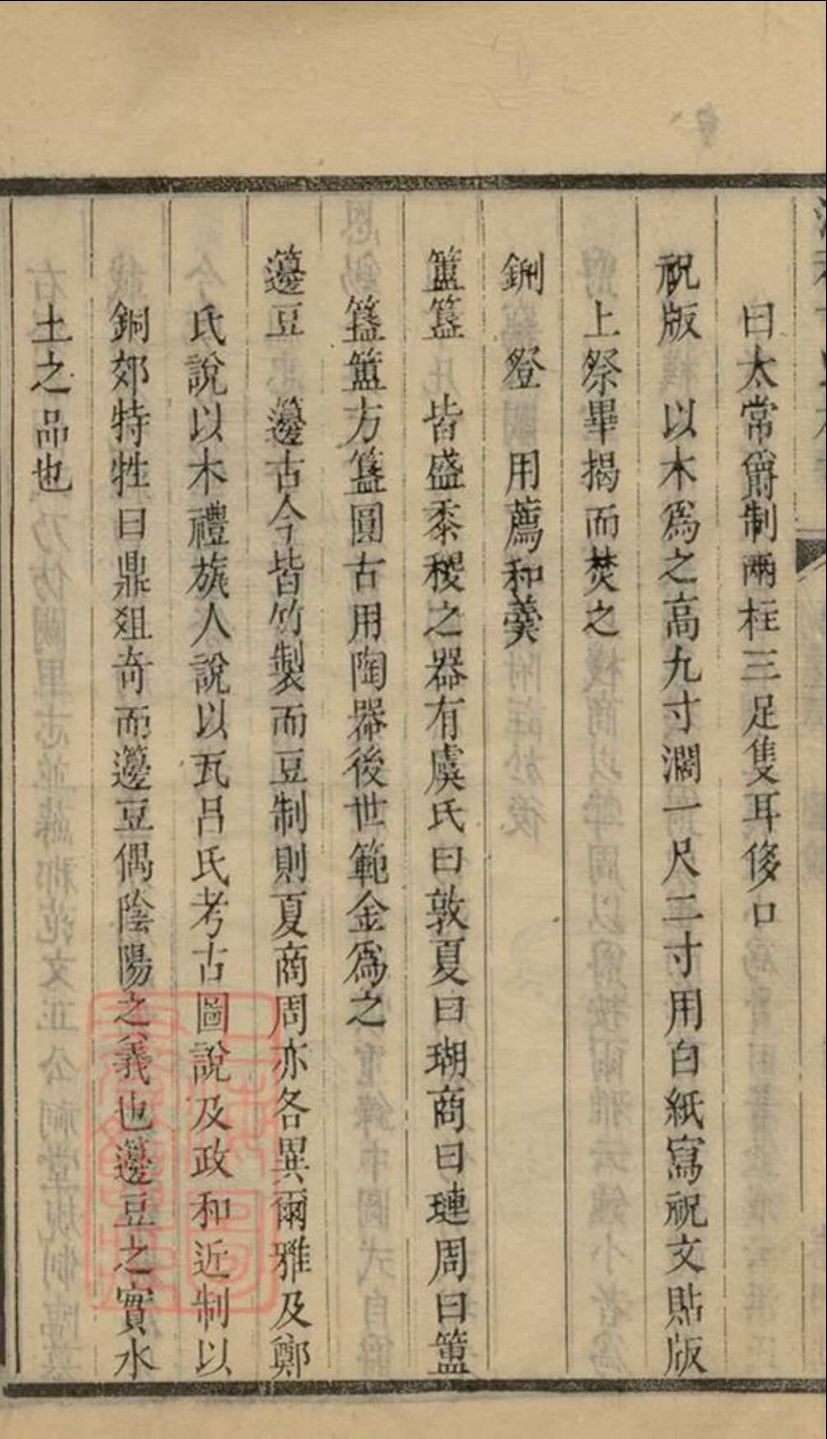 曰太常爵制兩柱三足隻耳侈口
祝版 以木爲之高九寸濶一尺二寸用白紙寫祝文貼版
上祭畢揭而焚之
鉶 登 用薦和羹
簠簋 皆盛黍稷之器有虞氏曰敦夏曰瑚商曰璉周曰簠
簋簠方簋圓古用陶器後世範金爲之
籩豆 籩古今皆竹製而豆制則夏商周亦各異爾雅及鄭
氏說以木禮旊人說以瓦呂氏考古圖說及政和近制以
銅郊特牲曰鼎俎奇而籩豆偶陰陽之義也籩豆之實水
土之品也